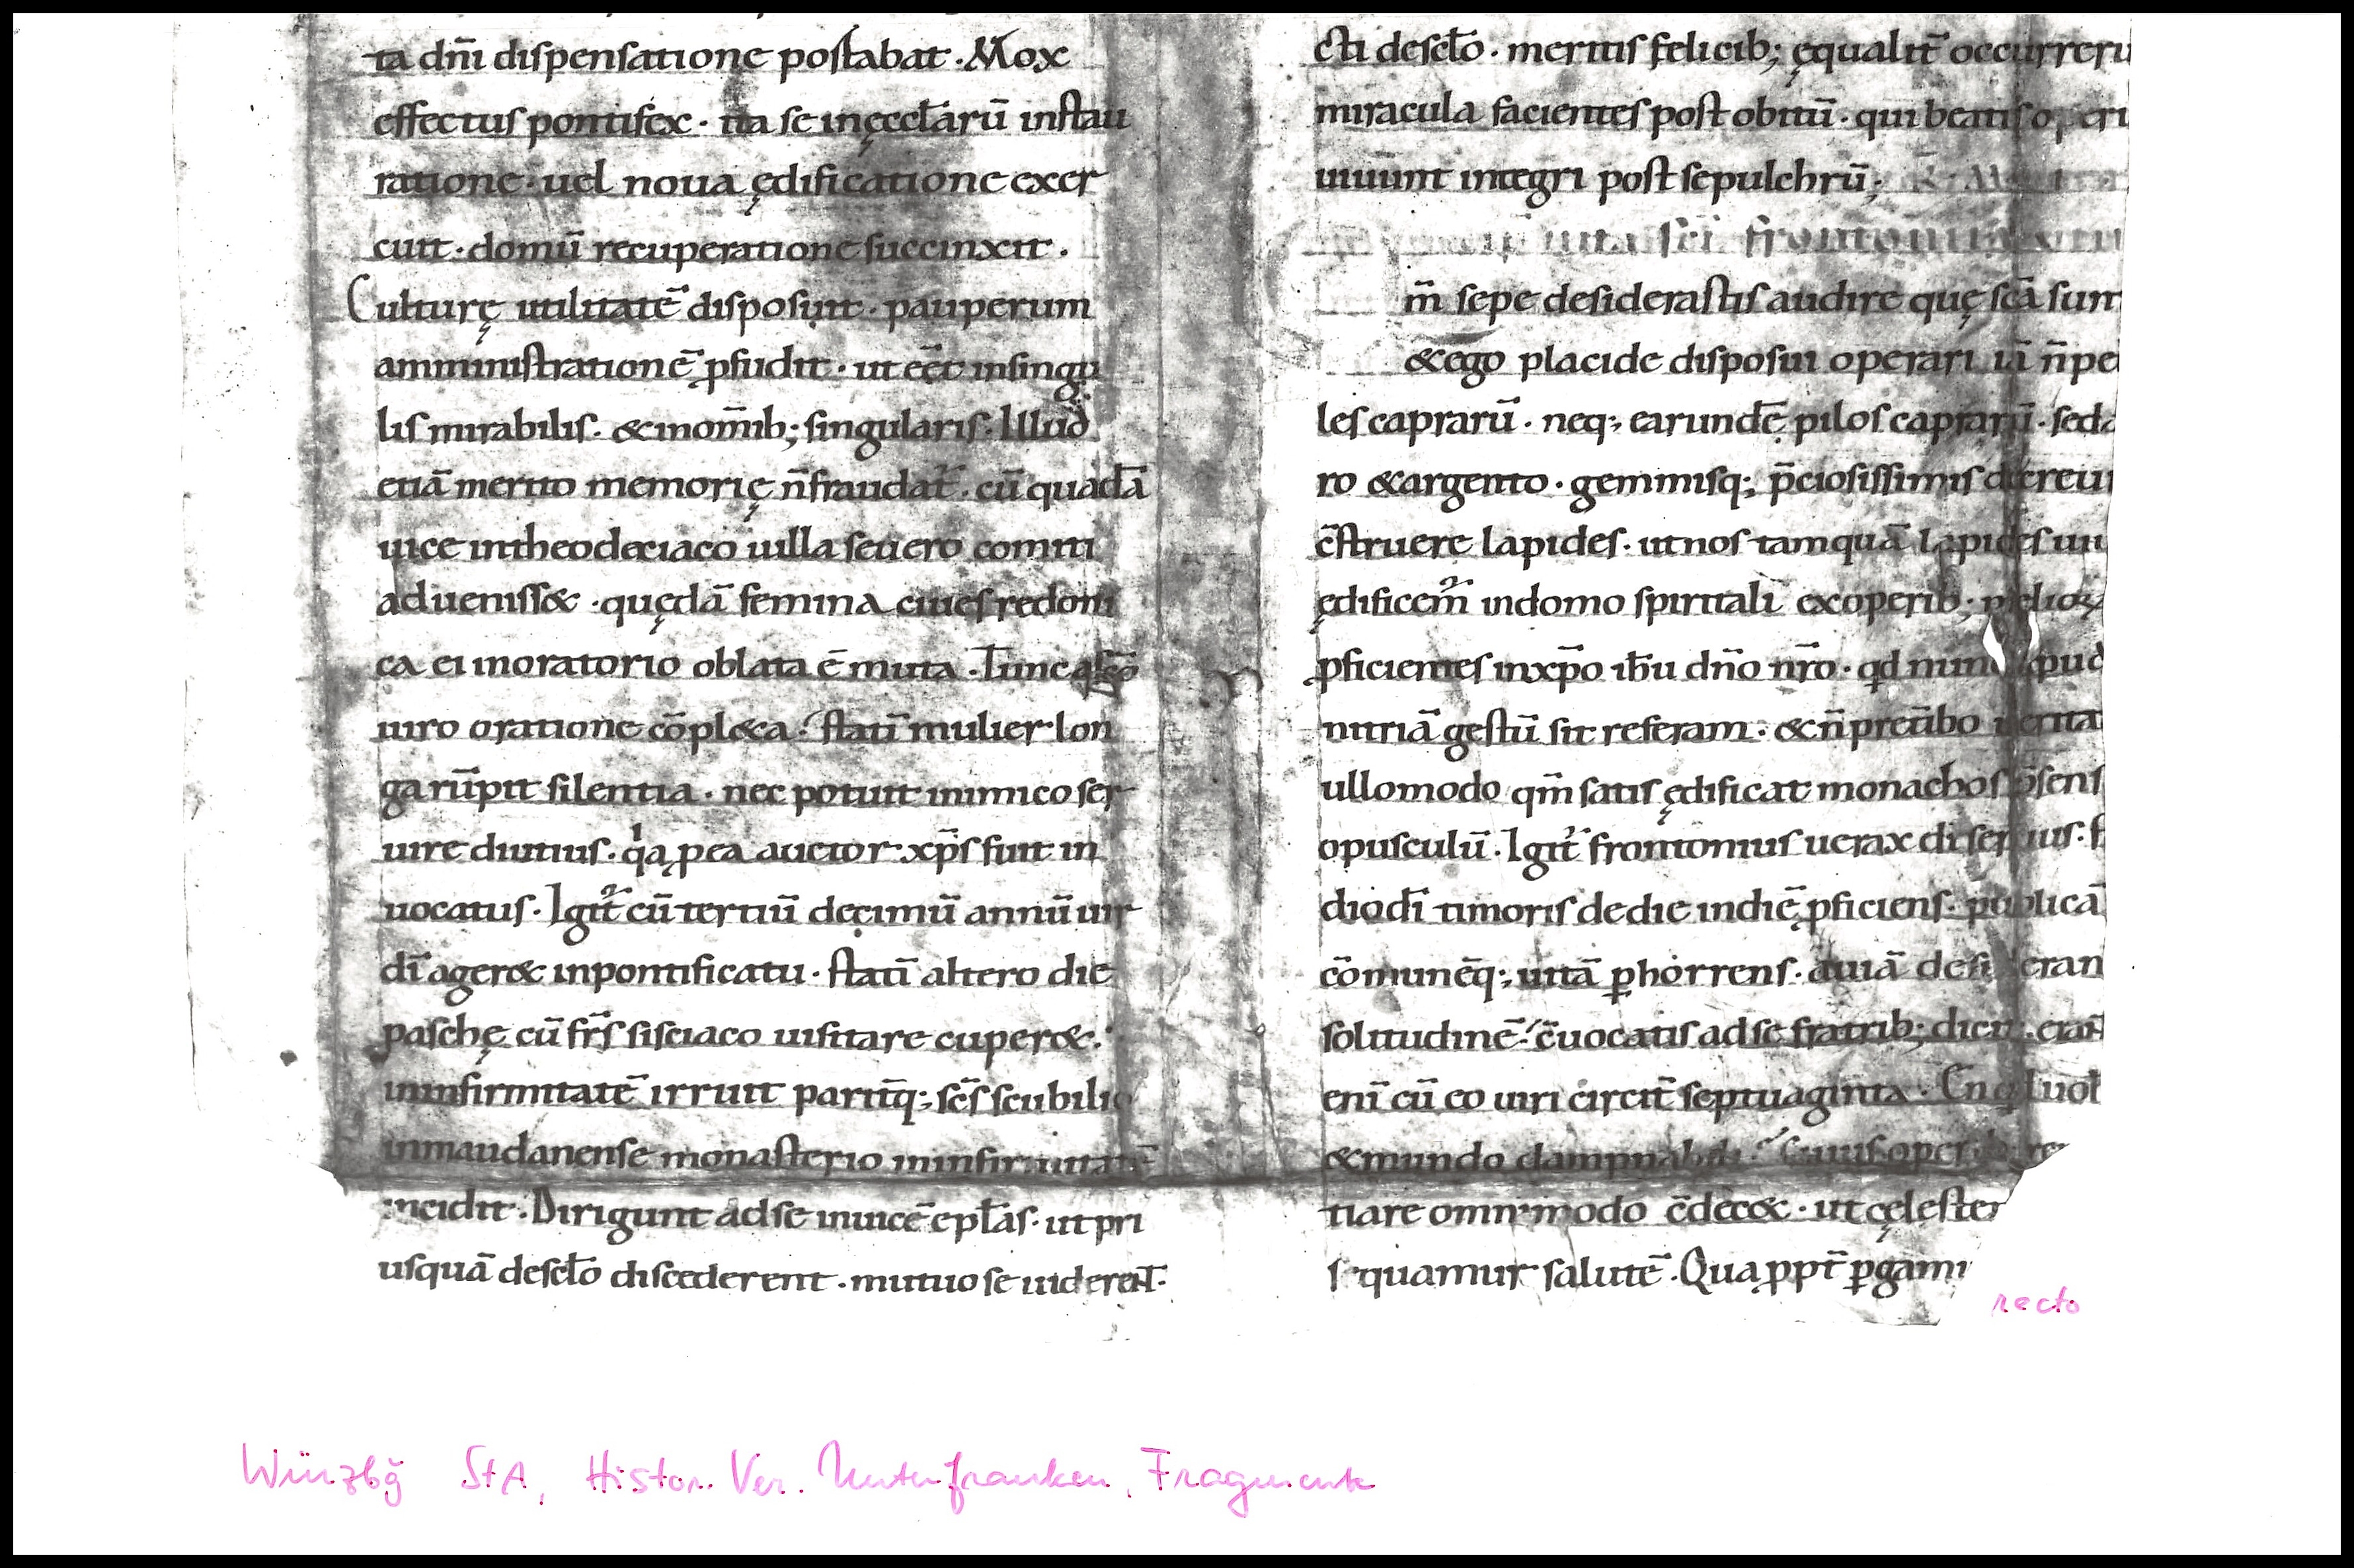 ta dñi dispensatione postabat. Mox
effectus pontifex. ita se in ęcclarū instau
ratione. uel noua ędificatione exer
cuit. domū recuperatione succinxit.
Culturę utilitatē disposuit. pauperum
amministrationē ꝓfudit. ut eēt in singu
lis mirabilis. & in om̄ib; singularis. Illud
etiā merito memorię n̄ fraudat̄. cū quadā
uice in theodeciaco uilla seuero comiti
aduenisset. quędā femina ciues redoni
ca ei in oratorio oblata ē muta. Tunc a sc̄o
uiro oratione cōpleta. statī mulier lon
ga rūpit silentia. nec potuit inimico ser
uire diutius. qa ꝓ ea auctor xp̄s fuit in
uocatus. Igit̄ cū tertiū decimū annū uir
dī ageret in pontificatu. statī altero die
paschę cū fr̄s sisciaco uisitare cuperet.
in infirmitatē irruit parit̄q; sc̄s scubilio
in maudanense monasterio in infirmitatē
incidit. Dirigunt ad se inuicē epl̄as. ut pri
usquā de scl̄o discederent. mutuo se uiderent.
cti de scl̄o. meritis felicib; ęqualit̄ occurreru
miracula facientes post obitū. qui beatis operi
uiuunt integri post sepulchrū;
uita sc̄i frontonii
m̄ sepe desiderastis audire quę sc̄a sunt
& ego placide disposui operari iā n̄ pe
les caprarū. neq; earundē pilos caprarū. sed a
ro & argento. gemmisq; p̄ciosissimis decreui
c̄struere lapides. ut nos tamquā lapides uiu
ędificem̄ in domo spiritali ex operib; melioꝝ
ꝓficientes in xp̄o ih̄u dn̄o nr̄o. qd nunc apud
nitriā gestū sit referam. & n̄ pretībo uerita
ullomodo qm̄ satis ędificat monachos p̄sens
opusculū. Igit̄ frontonius uerax di seruus. s
dio dī timoris de die in diē ꝓficiens. publicā
cōmunēq; uitā ꝑhorrens. auiā desideran
solitudinē. c̄uocatis ad se fratrib; dicit. erant
enī cū eo uiri circit̄ septuaginta. En quid uob
& mundo dampnabili. Cuius operib; re
tiare omnimodo c̄decet. ut cęlestem
sequamur salutē. Quaꝓpt̄ ꝑgam
recto
Würzbg StA, Histor. Ver. Unterfranken, Fragmente